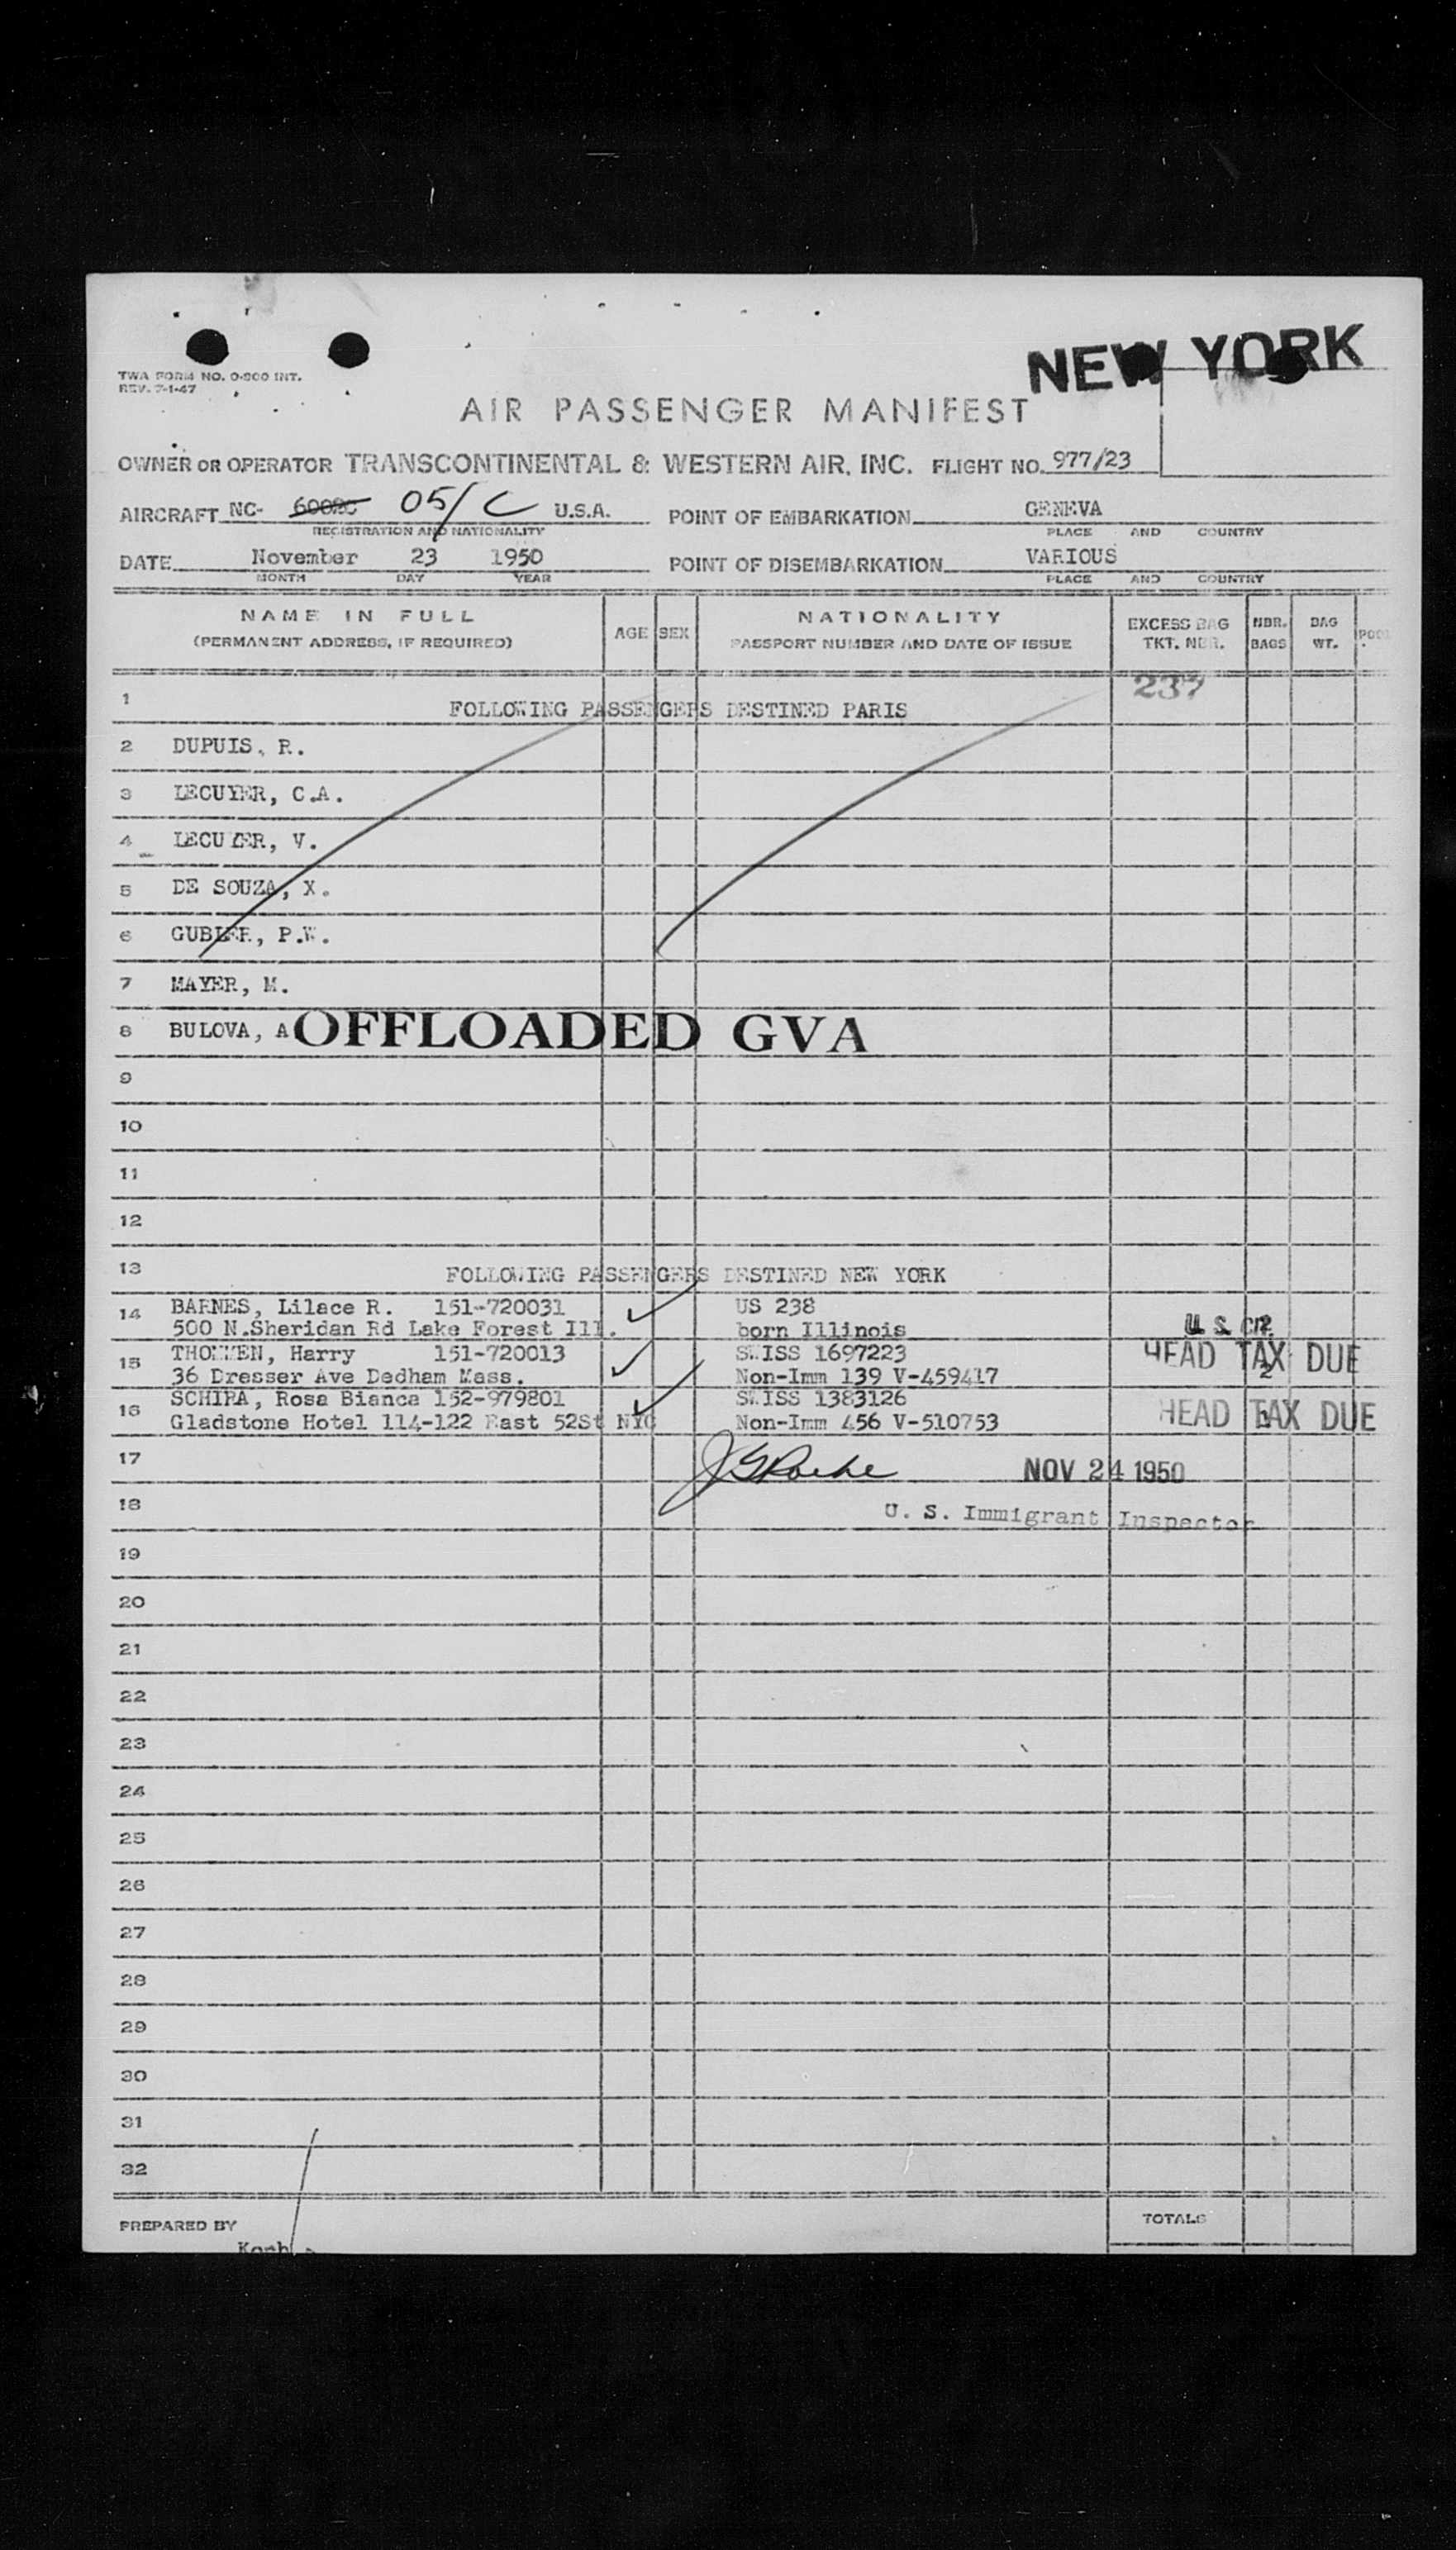 NEW YORK
TWA FORM NO. 0-900 INT.
REV. 7-1-47
AIR PASSENGER MANIFEST
OWNER OR OPERATOR TRANSCONTINENTAL & WESTERN AIR, INC. FLIGHT NO. 977/23
AIRCRAFT NC- 05/C U.S.A. POINT OF EMBARKATION GENEVA
REGISTRATION AND NATIONALITY PLACE AND COUNTRY
DATE November 23 1950 POINT OF DISEMBARKATION VARIOUS
MONTH DAY YEAR PLACE AND COUNTRY
NAME IN FULL AGE SEX NATIONALITY EXCESS BAG NBR. BAG
(PERMANENT ADDRESS, IF REQUIRED) PASSPORT NUMBER AND DATE OF ISSUE TKT. NBR. BAGS WT.
237
1 FOLLOWING PASSENGERS DESTINED PARIS
2 DUPUIS, R.
3 LECUYER, C.A.
4 LECUYER, V.
5 DE SOUZA, X.
6 GUBLER, P.W.
7 MAYER, M.
8 BULOVA, A OFFLOADED GVA
9
10
11
12
13 FOLLOWING PASSENGERS DESTINED NEW YORK
14 BARNES, Lilace R. 151-720031 US 238
500 N.Sheridan Rd Lake Forest Ill. born Illinois U.S. CIT.
15 THOMMEN, Harry 151-720013 SWISS 1697223 HEAD TAX DUE
36 Dresser Ave Dedham Mass. Non-Imm 139 V-459417 2
16 SCHIRA, Rosa Bianca 152-979801 SWISS 1383126 HEAD TAX DUE
Gladstone Hotel 114-122 East 52St NYC Non-Imm 456 V-510753
17 NOV 24 1950
18 U. S. Immigrant Inspector
19
20
21
22
23
24
25
26
27
28
29
30
31
32
PREPARED BY TOTALS